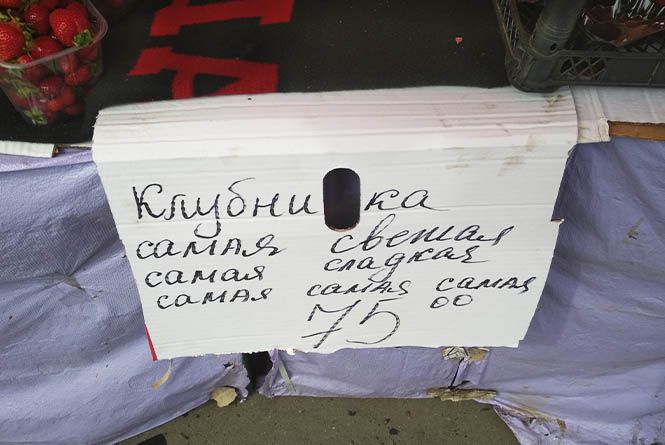 Клубника
самая свежая
самая сладкая
самая самая самая
75 00